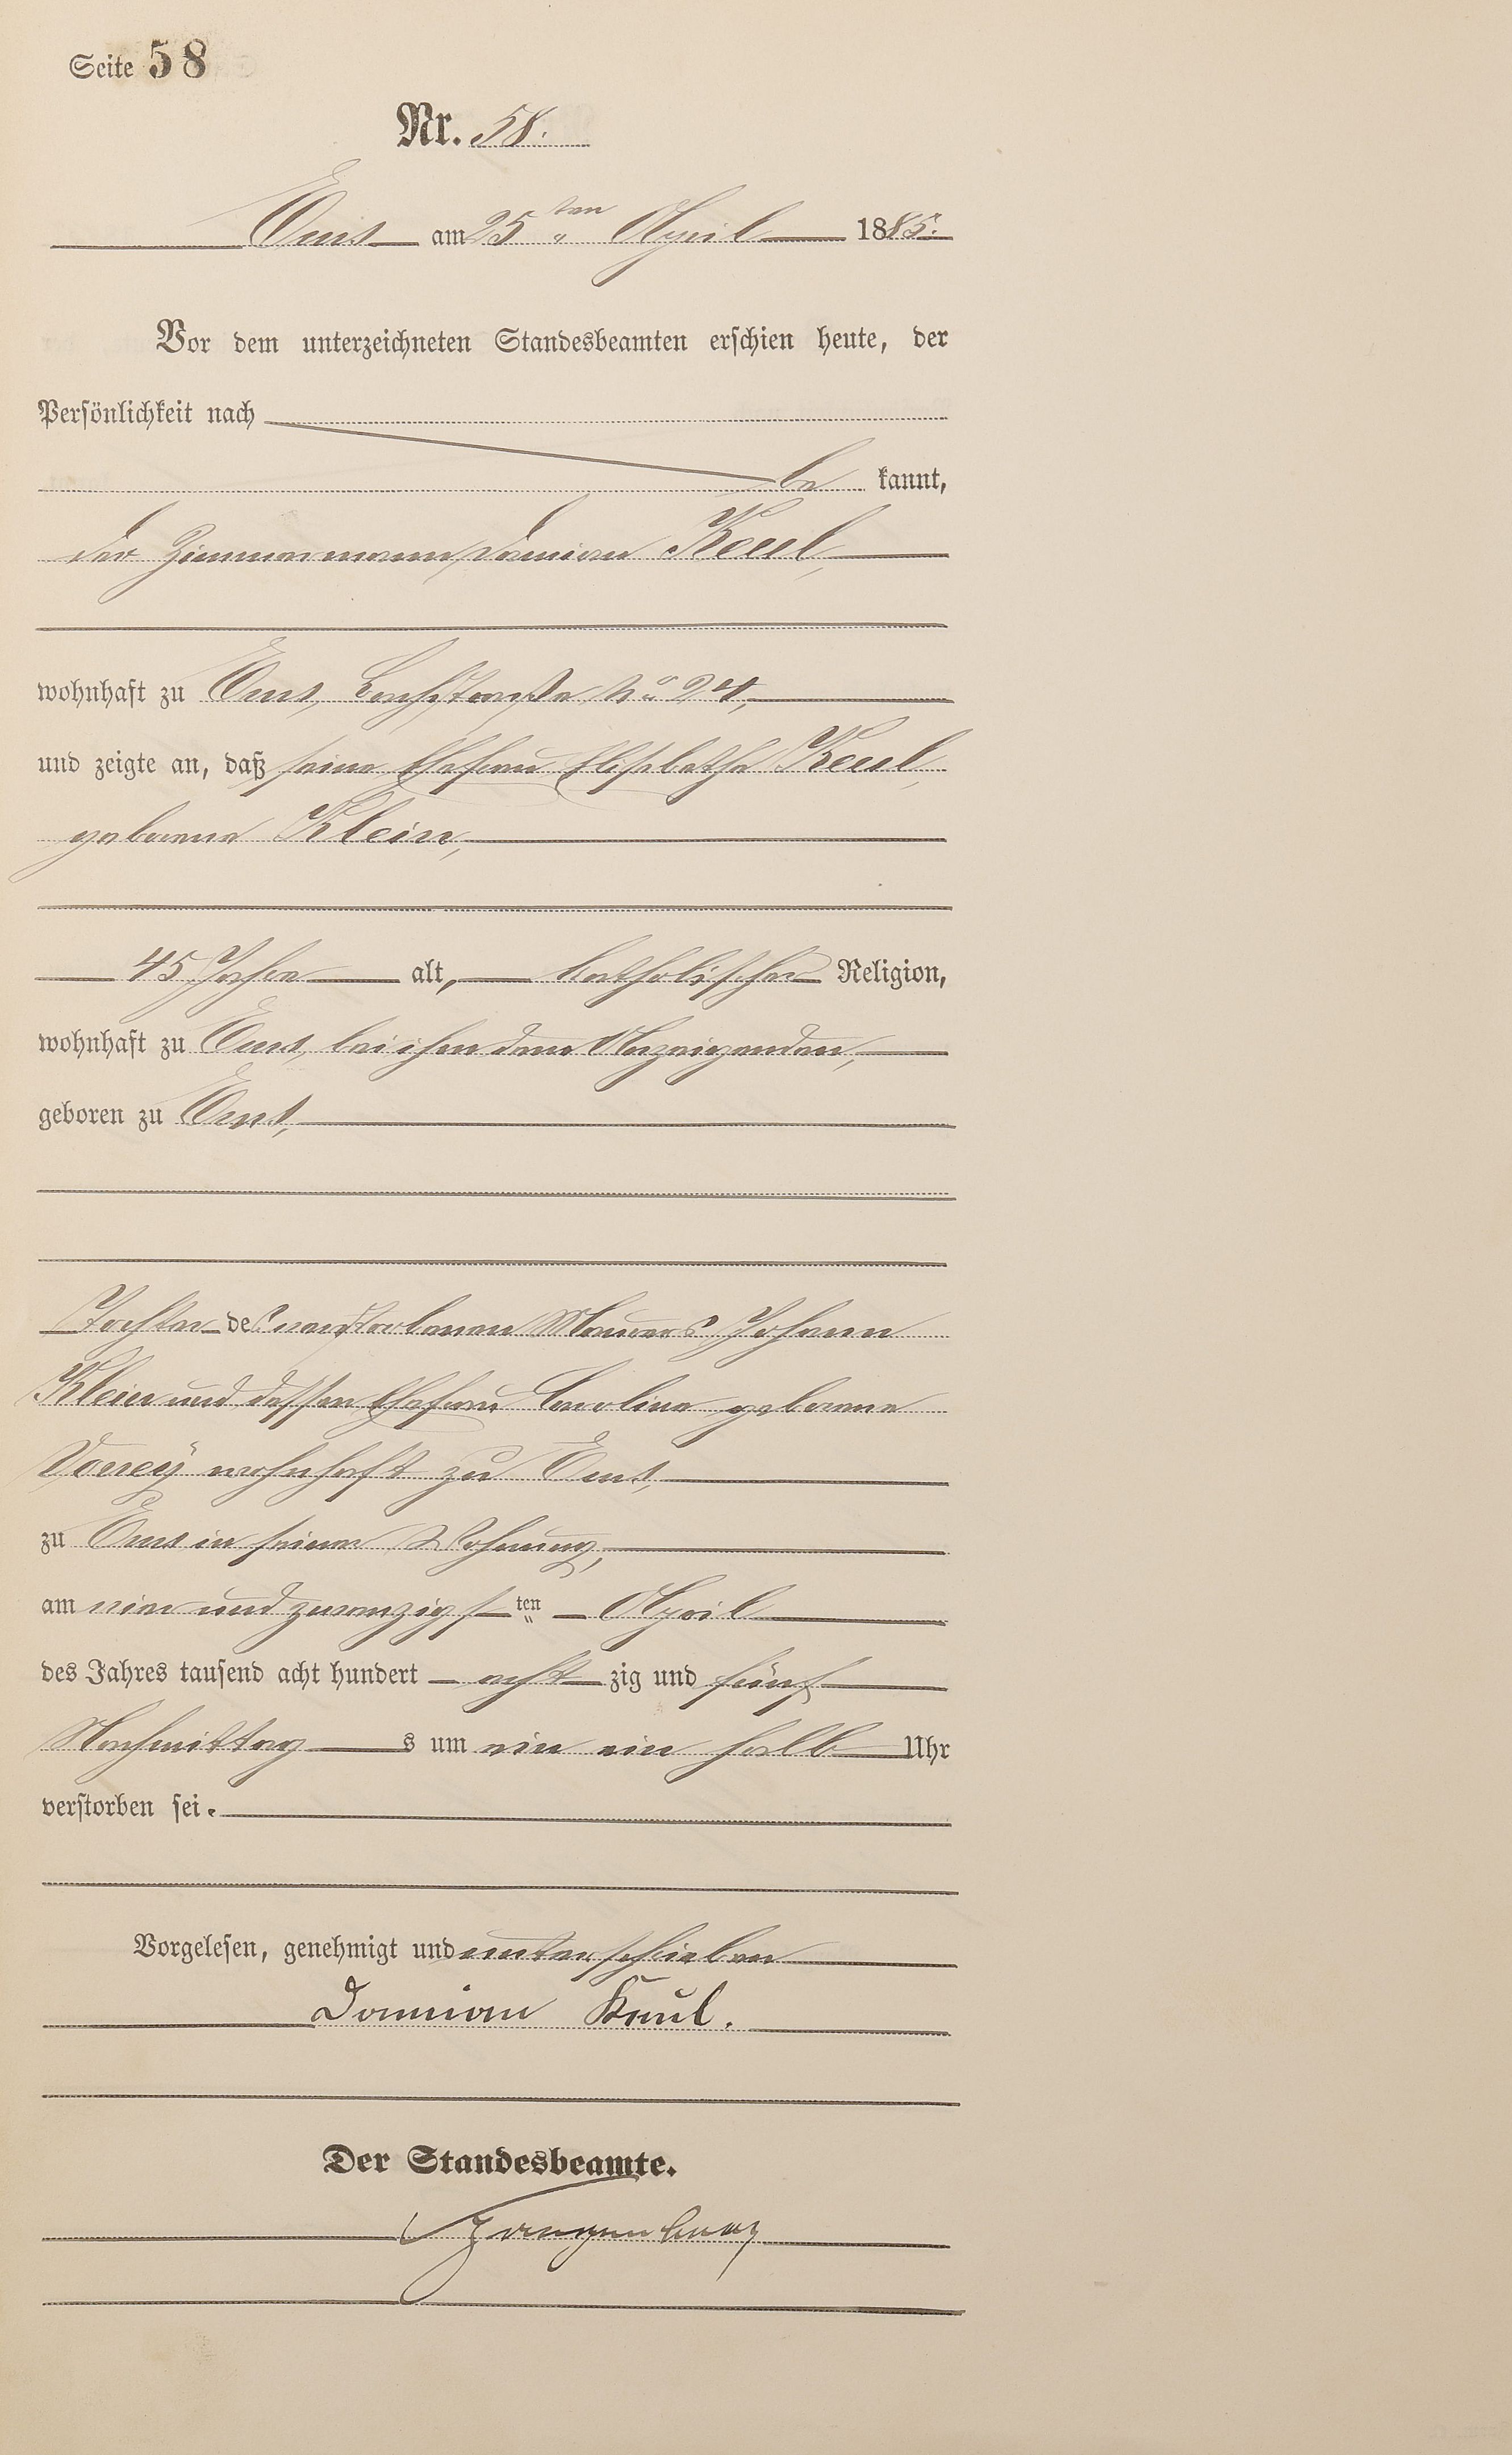 Seite 58
Nr. 58.
Ems am 25ten April 1885.
Vor dem unterzeichneten Standesbeamten erschien heute, der
Persönlichkeit nach
be kannt,
der Zimmermann Damian Keul,
wohnhaft zu Ems, Bachstraße No 24,
und zeigte an, daß seine Ehefrau Elisabetha Keul,
geborene Klein,
45 Jahre alt, katholischer Religion,
wohnhaft zu Ems, bei ihm dem Anzeigenden,
geboren zu Ems,
Tochter des verstorbenen Maurers Johann
Klein und dessen Ehefrau Caroline geborene
wohnhaft zu Ems,
zu Ems in seiner Wohnung,
am vier und zwanzigsten April
des Jahres tausend acht hundert acht zig und fünf
Nachmittag s um ein ein halb Uhr
verstorben sei.
Vorgelesen, genehmigt und unterschrieben
Damian Keul.
Der Standesbeamte.